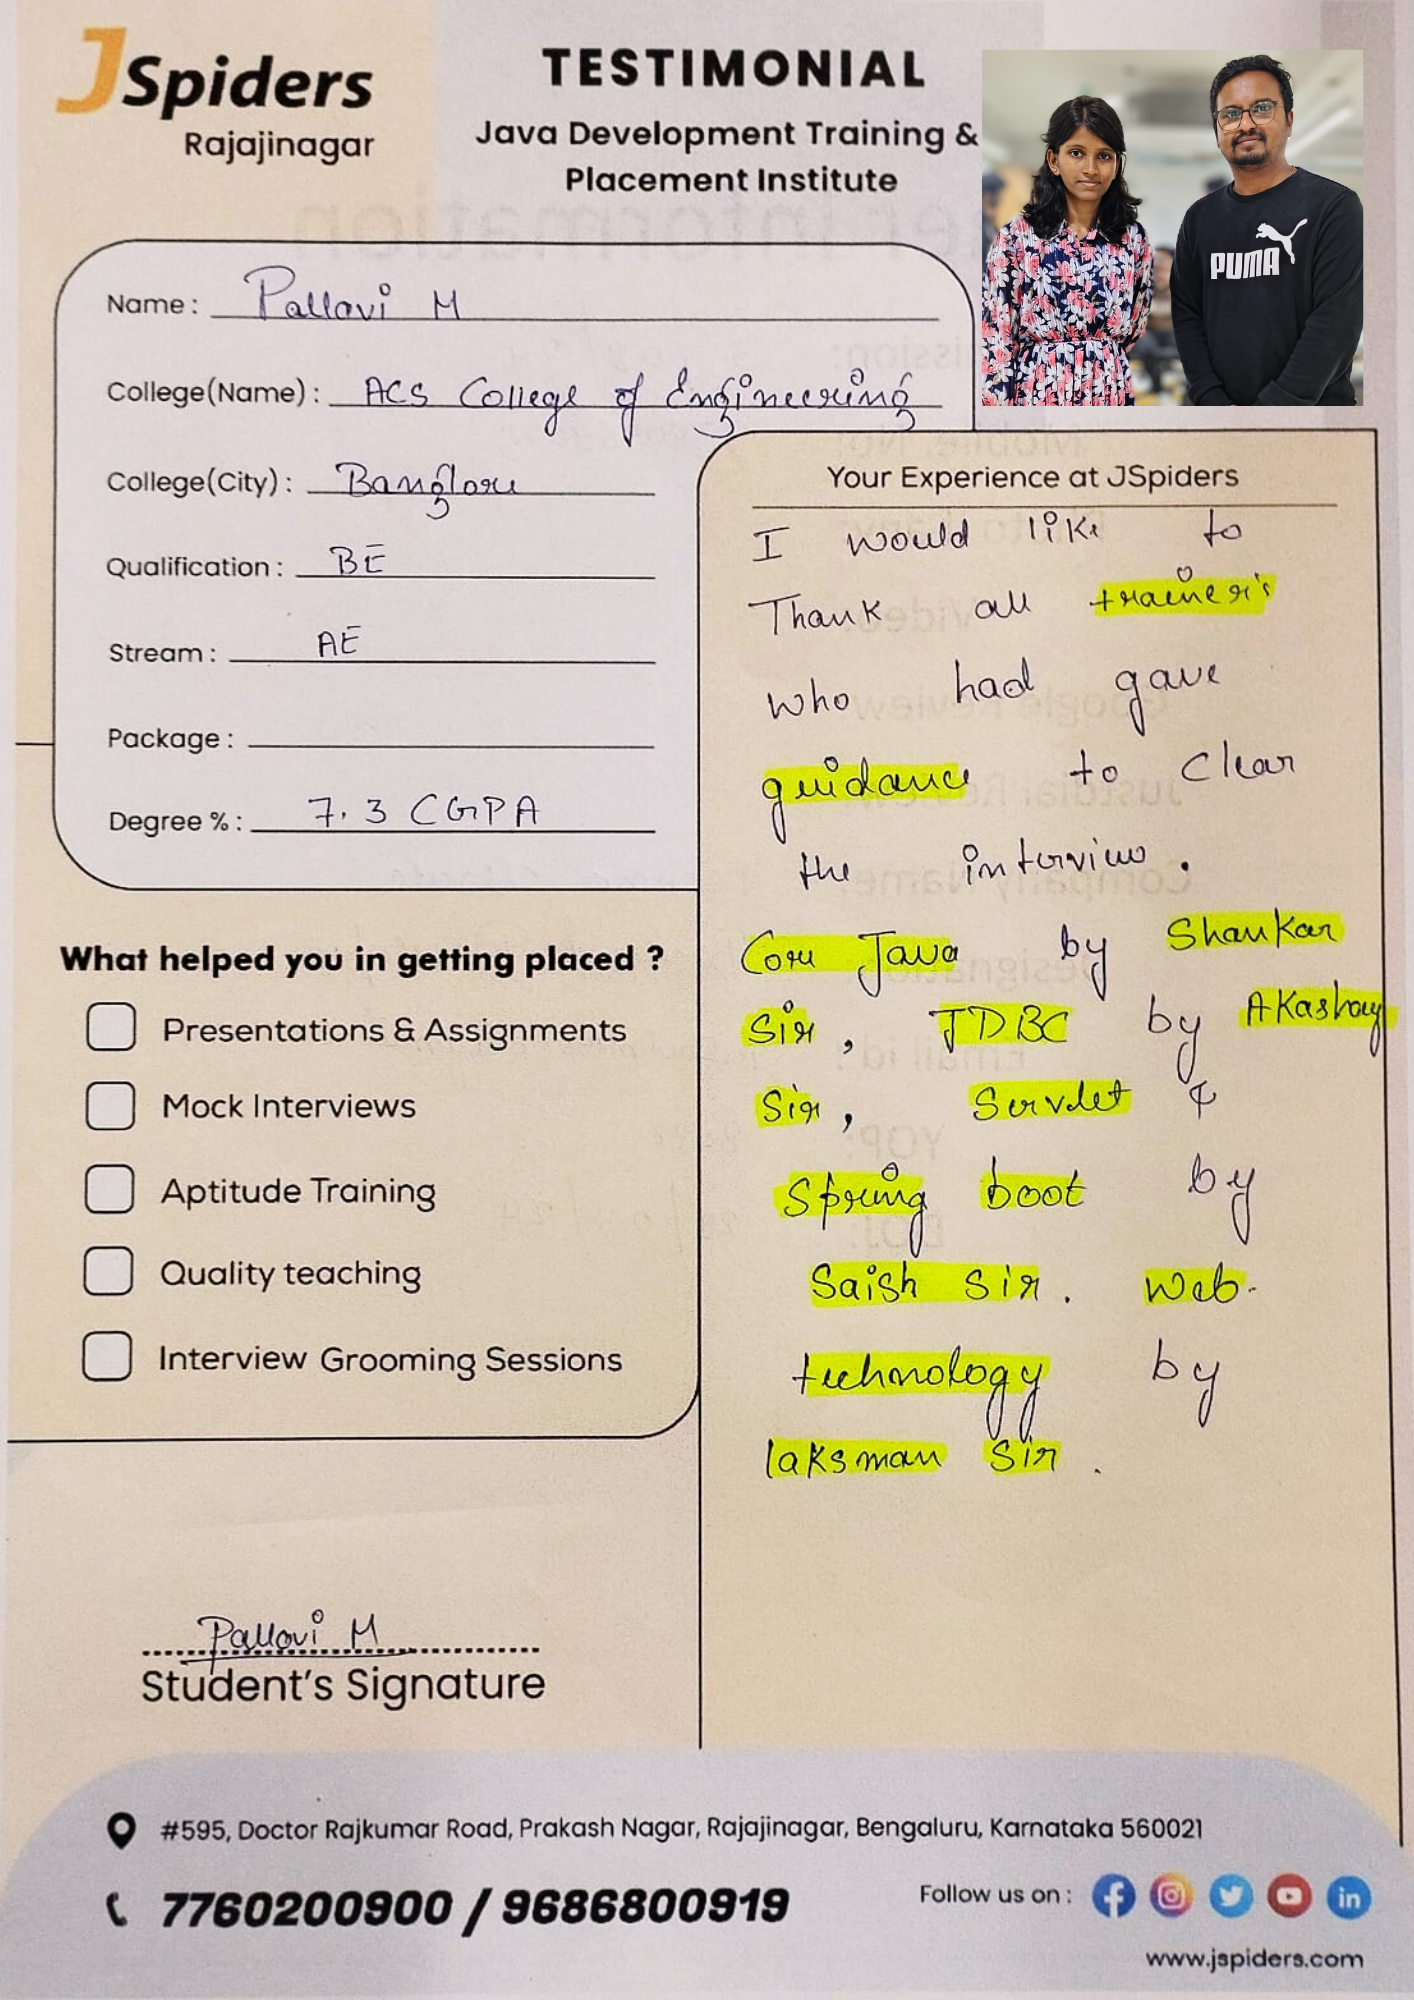 JSpiders
Rajajinagar
TESTIMONIAL
Java Development Training &
Placement Institute
PUMA
Name : Pallavi M
College(Name) : ACS College of Engineering
College(City) : Banglore
Qualification : BE
Stream : AE
Package :
Degree % : 7.3 CGPA
What helped you in getting placed ?
Presentations & Assignments
Mock Interviews
Aptitude Training
Quality teaching
Interview Grooming Sessions
Pallavi M
Student's Signature
Your Experience at JSpiders
I would like to
Thank all trainer's
who had gave
guidance to clear
the interview .
Core Java by Shankar
Sir , JDBC by Akashay
Sir , Servlet &
Spring boot by
Saish Sir . Web-
technology by
laksman Sir .
#595, Doctor Rajkumar Road, Prakash Nagar, Rajajinagar, Bengaluru, Karnataka 560021
7760200900 / 9686800919
Follow us on :
www.jspiders.com